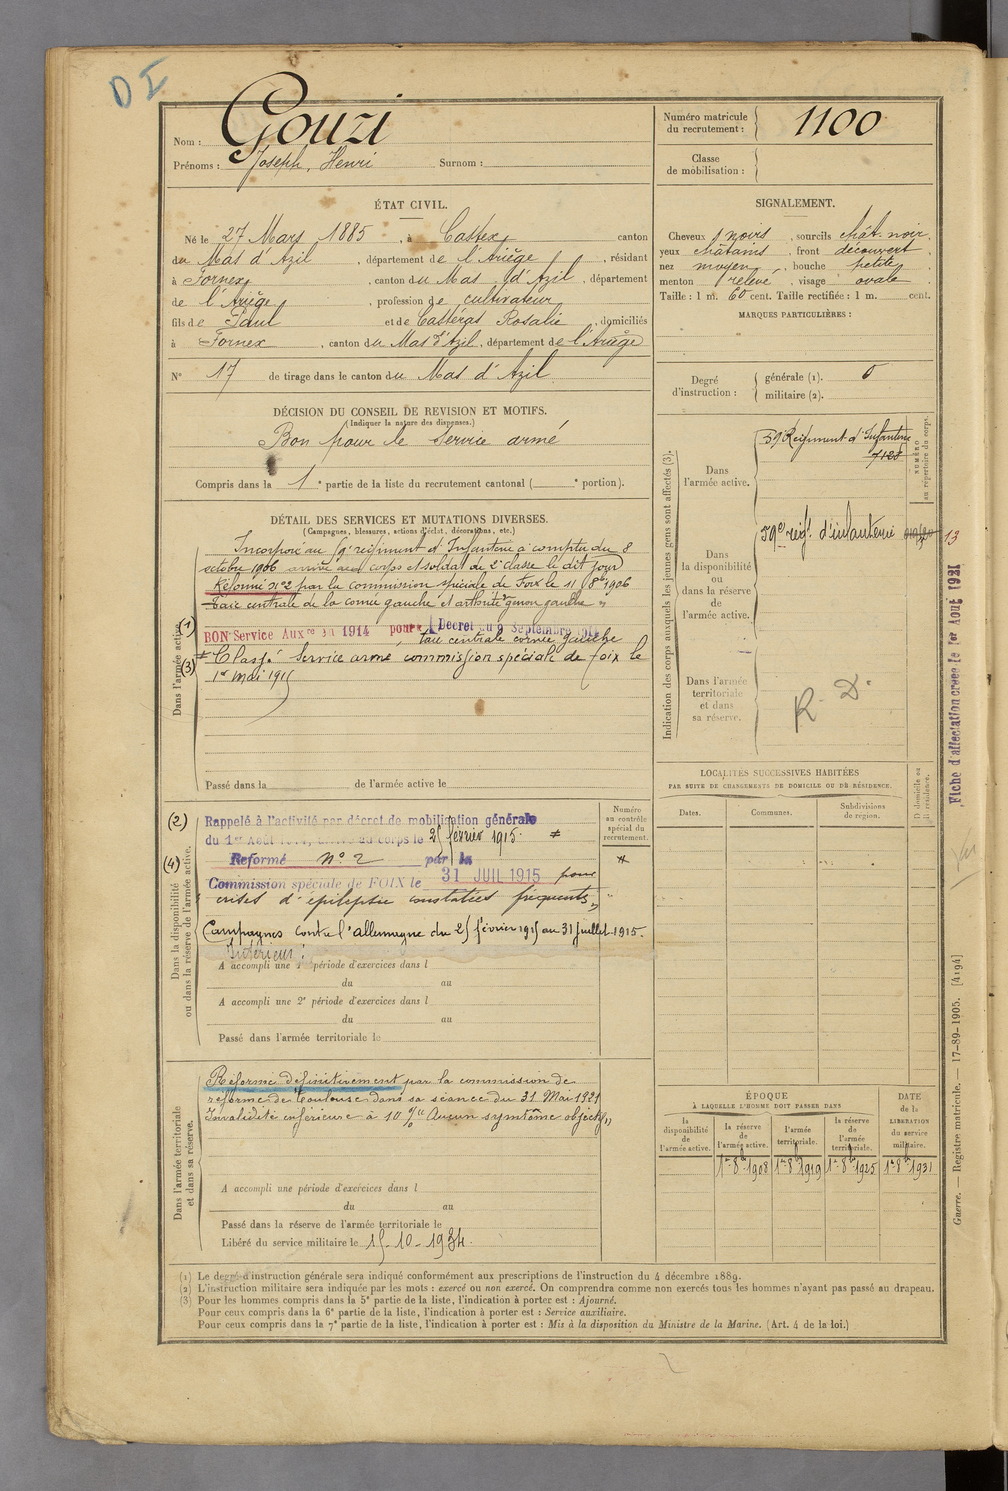 DI
Nom : Gouzi
Prénoms : Joseph, Henri Surnom :
Numéro matricule
du recrutement : 1100
Classe
de mobilisation :
ÉTAT CIVIL.
Né le 27 Mars 1885, à Castex, canton
du Mas d'Azil, département de l'Ariège, résidant
à Fornex, canton du Mas d'Azil, département
de l'Ariège, profession de cultivateur
fils de Paul et de Castéras Rosalie, domiciliés
à Fornex, canton du Mas d'Azil, département de l'Ariège
N° 17 de tirage dans le canton du Mas d'Azil
SIGNALEMENT.
Cheveux noirs, sourcils chât. noir.
yeux châtains, front découvert
nez moyen, bouche petite,
menton relevé, visage ovale
Taille : 1 m. 60 cent. Taille rectifiée : 1 m. cent.
MARQUES PARTICULIÈRES :
Degré
d'instruction :
générale (1). 0
militaire (2).
DÉCISION DU CONSEIL DE REVISION ET MOTIFS.
(Indiquer la nature des dispenses.)
Bon pour le service armé
Compris dans la 1e partie de la liste du recrutement cantonal ( e portion).
DÉTAIL DES SERVICES ET MUTATIONS DIVERSES.
(Campagnes, blessures, actions d'éclat, décorations, etc.)
Dans l'armée active.
Incorporé au 59e régiment d'Infanterie à compter du 8
octobre 1906 arrivé au corps et soldat de 2e classe le dit jour
Réformé n°2 par la commission spéciale de Foix le 11 8bre 1906
Taie centrale de la cornée gauche et arthrite genou gauche "
(1) BON Service Auxre en 1914 pour Décret du 9 Septembre 1914
taie centrale cornée gauche
(3) Classé Service armé commission spéciale de foix le
1er mai 1915
Passé dans la de l'armée active le
Indication des corps auxquels les jeunes gens sont affectés (3).
NUMÉRO
au répertoire du corps.
Dans
l'armée active.
59e Régiment d'Infanterie
7128
Dans
la disponibilité
ou
dans la réserve
de
l'armée active.
59e régt. d'infanterie 13
Dans l'armée
territoriale
et dans
sa réserve.
R. D.
Fiche d'affectation créée le 1er Août 1921
LOCALITÉS SUCCESSIVES HABITÉES
PAR SUITE DE CHANGEMENTS DE DOMICILE OU DE RÉSIDENCE.
Dates.
Communes.
Subdivisions
de région.
D domicile ou
R résidence.
Numéro
au contrôle
spécial du
recrutement.
Dans la disponibilité
ou dans la réserve de l'armée active.
(2) Rappelé à l'activité par décret de mobilisation générale
du 1er Août 1914, arrivé au corps le 25 février 1915.
(4) Reformé n° 2 par la
Commission spéciale de FOIX le 31 JUIL 1915 pour
crises d'épilepsie constatées fréquentes "
Campagnes contre l'allemagne du 25 février 1915 au 31 juillet 1915.
Intérieur :
A accompli une 1re période d'exercices dans l
du au
A accompli une 2e période d'exercices dans l
du au
Passé dans l'armée territoriale le
Dans l'armée territoriale
et dans sa réserve.
Réformé définitivement par la commission de
réforme de Toulouse dans sa séance du 31 Mai 1921
Invalidité inférieure à 10 % Aucun symtôme objectif "
A accompli une période d'exercices dans l
du au
Passé dans la réserve de l'armée territoriale le
Libéré du service militaire le 15-10-1934.
ÉPOQUE
À LAQUELLE L'HOMME DOIT PASSER DANS
la
disponibilité
de
l'armée active.
la réserve
de
l'armée active.
l'armée
territoriale.
la réserve
de
l'armée
territoriale.
DATE
de la
LIBÉRATION
du service
militaire.
1er 8bre 1908 1er 8bre 1919 1er 8bre 1925 1er 8bre 1931
(1) Le degré d'instruction générale sera indiqué conformément aux prescriptions de l'instruction du 4 décembre 1889.
(2) L'instruction militaire sera indiquée par les mots : exercé ou non exercé. On comprendra comme non exercés tous les hommes n'ayant pas passé au drapeau.
(3) Pour les hommes compris dans la 5e partie de la liste, l'indication à porter est : Ajourné.
Pour ceux compris dans la 6e partie de la liste, l'indication à porter est : Service auxiliaire.
Pour ceux compris dans la 7e partie de la liste, l'indication à porter est : Mis à la disposition du Ministre de la Marine. (Art. 4 de la loi.)
Guerre. — Registre matricule. — 17-89-1905. [4194]